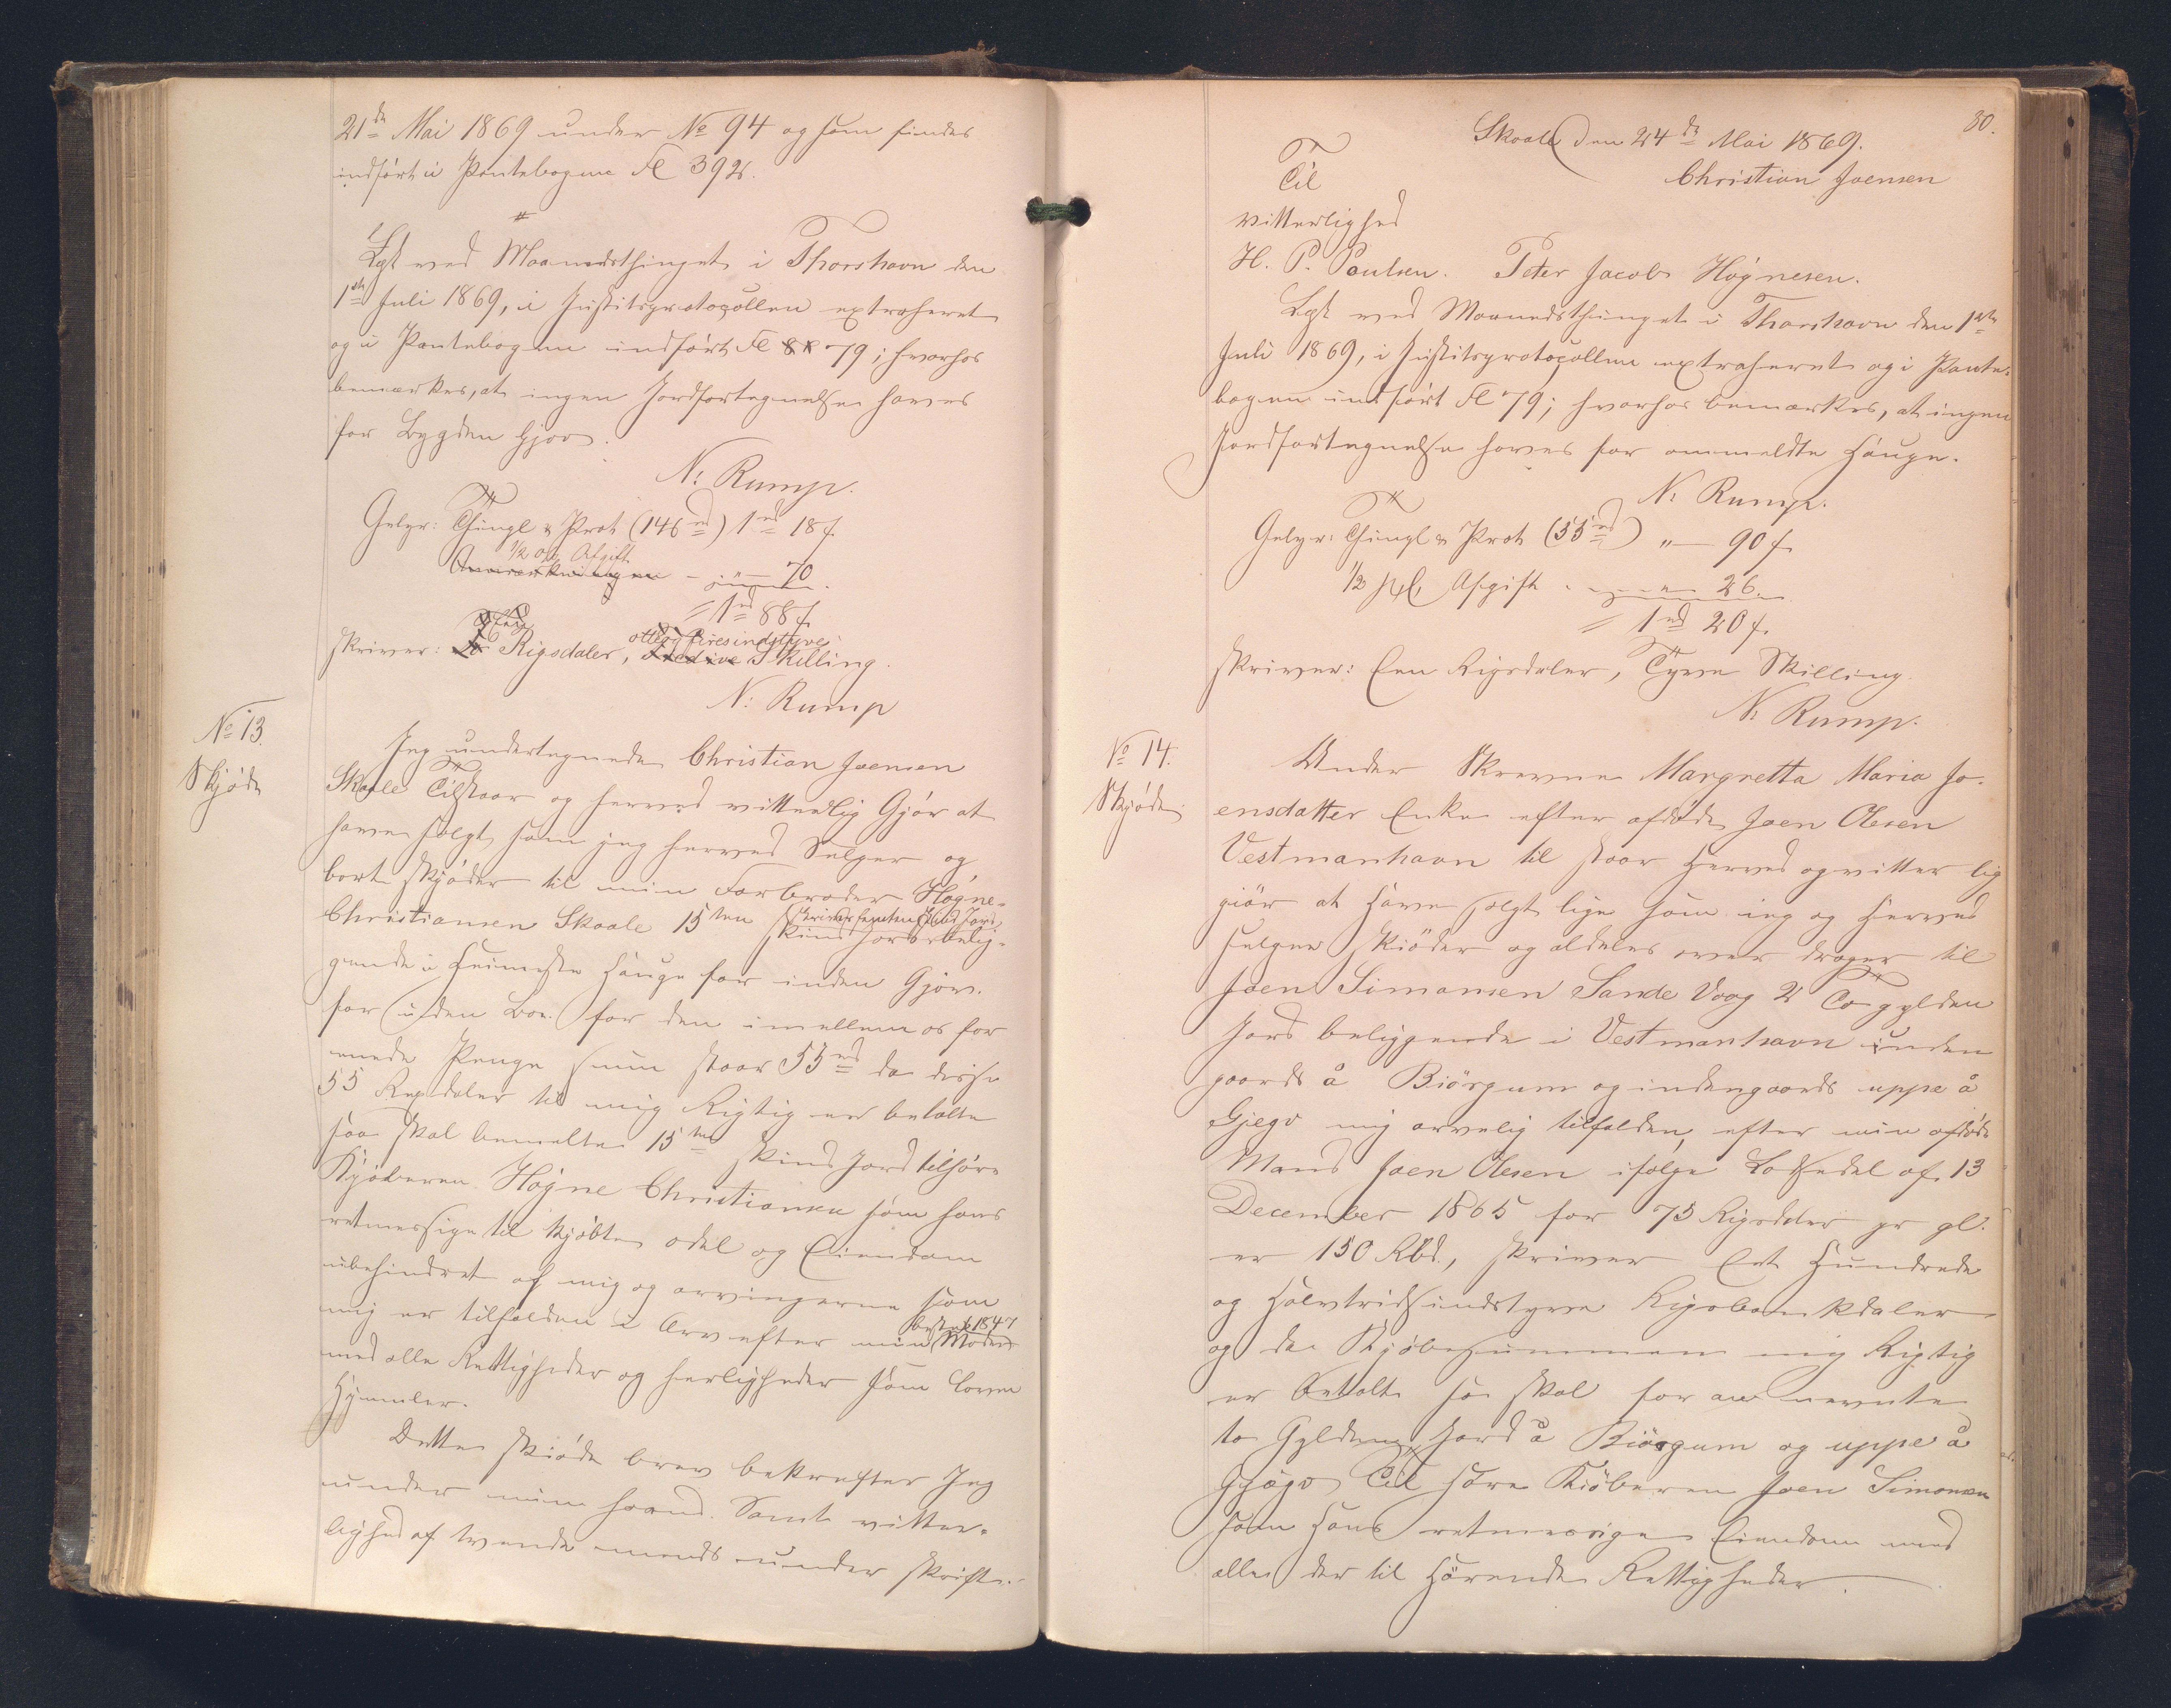 21de Mai 1869 under No 94 og som findes
indført i Pantebogen Fl 392.
Læst ved Maanedsthinget i Thorshavn den
1ste Juli 1869, i Justitsprotocollen extraheret
og i Pantebogen indført Fl 79; hvorhos
bemærkes, at ingen Jordfortegnelse haves
for Bygden Gjov.
N. Rump.
Gebyr: Thingl & Prot (146 rd) 1 rd 18 s.
1/2 pCt Afgift - " - 70
= 1 rd 88 s.
skriver: Een Rigsdaler, otteogfiresindstyve Skilling.
N. Rump
No 13.
Skjøde
Jeg undertegnede Christian Joensen
Skaale Tilstaar og herved vitterlig Gjør at
have solgt som jeg herved Selger og
bort skjøder til min Farbroder Høgne
Christiansen Skaale 15ten Skind Jord belig-
skriver femten Skind Jord
gende i Heimeste Hauge for inden Gjov.
for uden Boe. for den imellem os for
enede Penge sum stoor 55 rd da disse
55 Rigsdaler til mig Rigtig er betalte
saa skal bemelte 15ten Skind Jord tilhøre
Kjøberen Høgne Christiansen som hans
retmessige til kjøbte odel og Eiendom
ubehindret af mig og arvingerne som
mig er tilfalden i Arv efter min Moder
1847
med alle Rettigheder og herligheder som Loven
Hjemler.
Dette skiøde brev bekrefter Jeg
under min haand. Samt vitter-
lighed af tvende mends under skrift.
80.
Skaale den 24de Mai 1869.
Christian Joensen
Til
vitterlighed
H. P. Poulsen. Peter Jacob Høgnesen.
Læst ved Maanedsthinget i Thorshavn den 1ste
Juli 1869, i Justitsprotocollen extraheret og i Pante-
bogen indført Fl 79; hvorhos bemærkes, at ingen
Jordfortegnelse haves for ommeldte Hauge.
N. Rump.
Gebyr: Thingl & Prot (55 rd) " - 90 s.
1/2 pCt. Afgift - " - 26.
= 1 rd 20 s.
skriver: Een Rigsdaler, Tyve Skilling.
N. Rump.
No 14.
Skjøde.
Under Skrevne Margretta Maria Jo-
ensdatter Enke efter afdøde Joen Olesen
Vestmanhavn til staar herved og vitter lig
giør at Have solgt lige som ieg og Herved
selger skiøder og aldeles over drager til
Joen Simonsen Sande Vaag 2 To gylden
Jord beliggende i Vestmanhavn inden
gaards å Biörgum og indengaards uppe å
Gjegv mig arvelig tilfalden, efter min afdøde
Mand Joen Olesen ifølge Lodsedel af 13
December 1865 for 75 Rigsdaler pr gl.
er 150 Rbd., skriver Eet Hundrede
og Halvtridsindstyve Rigsbankdaler
og da Kjøbesummen mig Rigtig
er betalt so skal for an nevnte
to Gylden Jord å Biörgum og uppe å
Gjøgv Til Høre Kiöberen Joen Simonsen
som Hans retmessige Eiendom med
alle der til Hørende Rettigheder.